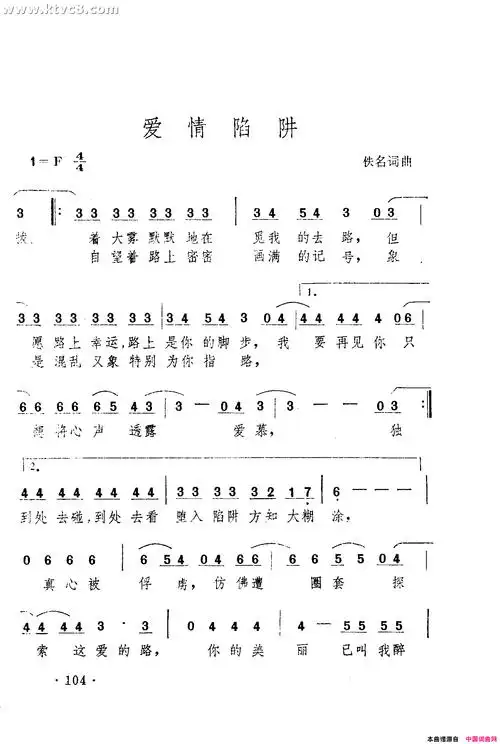 www.ktvc8.com
爱情陷阱
1=F 4/4 佚名词曲
3 ‖: 33 33 33 33 | 34 54 3 03 |
披 着大雾默默地在 觅我的去路，但
自望着路上密密 画满的记号，象
33 33 33 33 | 34 54 3 3 | 44 44 4 06 |
愿路上幸运，路上是你的脚步，我 要再见你只
是混乱又象特别为你指路，
1.
66 66 65 43 | 3 — 04 3 | 3 — — 03 :‖
想将心声透露 爱慕， 独
2.
44 44 44 44 | 33 33 32 17 | 6 — — — |
到处去碰，到处去看 堕入陷阱方知大糊涂，
0 6 6 6 | 54 4 04 66 | 66 55 5 04 |
真心被 俘虏，仿佛遭 圈套 探
44 44 3· 3 | 0 4 4 4 | 4 55 55 |
索这爱的路， 你的美丽 已叫我醉
· 104 ·
本曲谱源自 中国词曲网